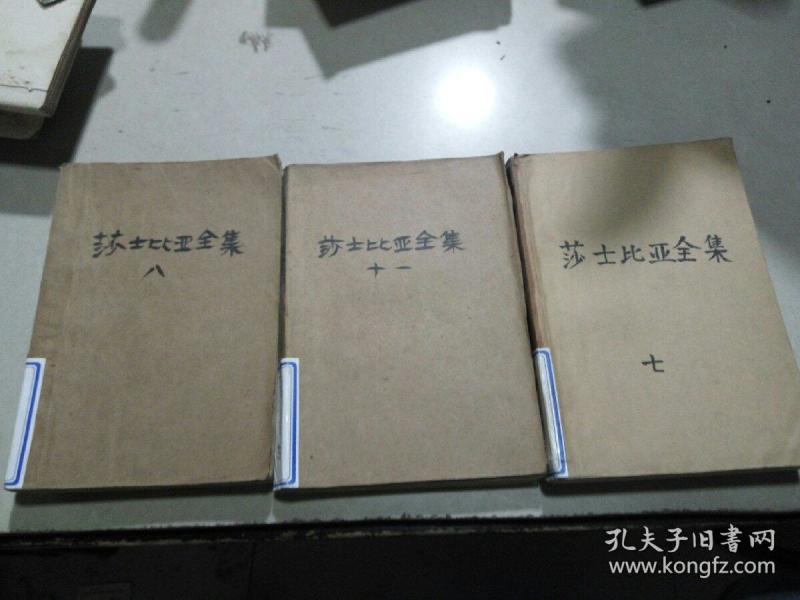 莎士比亚全集
八
莎士比亚全集
十一
莎士比亚全集
七
孔夫子旧书网
www.kongfz.com